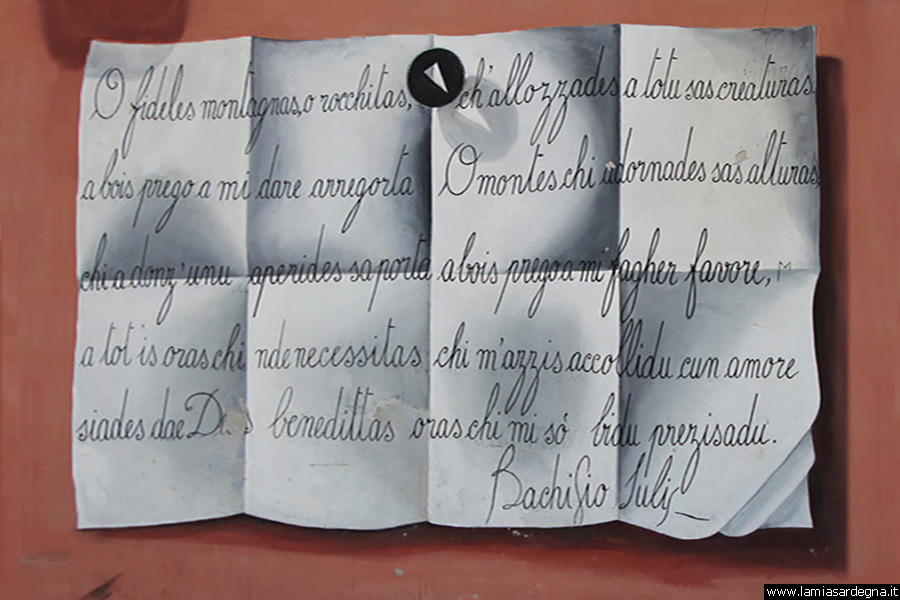 O fideles montagnas, o rocchitas,
a bois prego a mi dare arregorta
chi a donz'unu aperides sa porta
a tot is oras chi nde necessitas
siades dae benedittas
ch'allozzades a totu sas creaturas.
O montes chi adornades sas alturas,
a bois prego a mi fagher favore,
chi m'azzis accollidu cun amore
oras chi mi só bidu prezisadu.
Bachisio Sulis
www.lamiasardegna.it